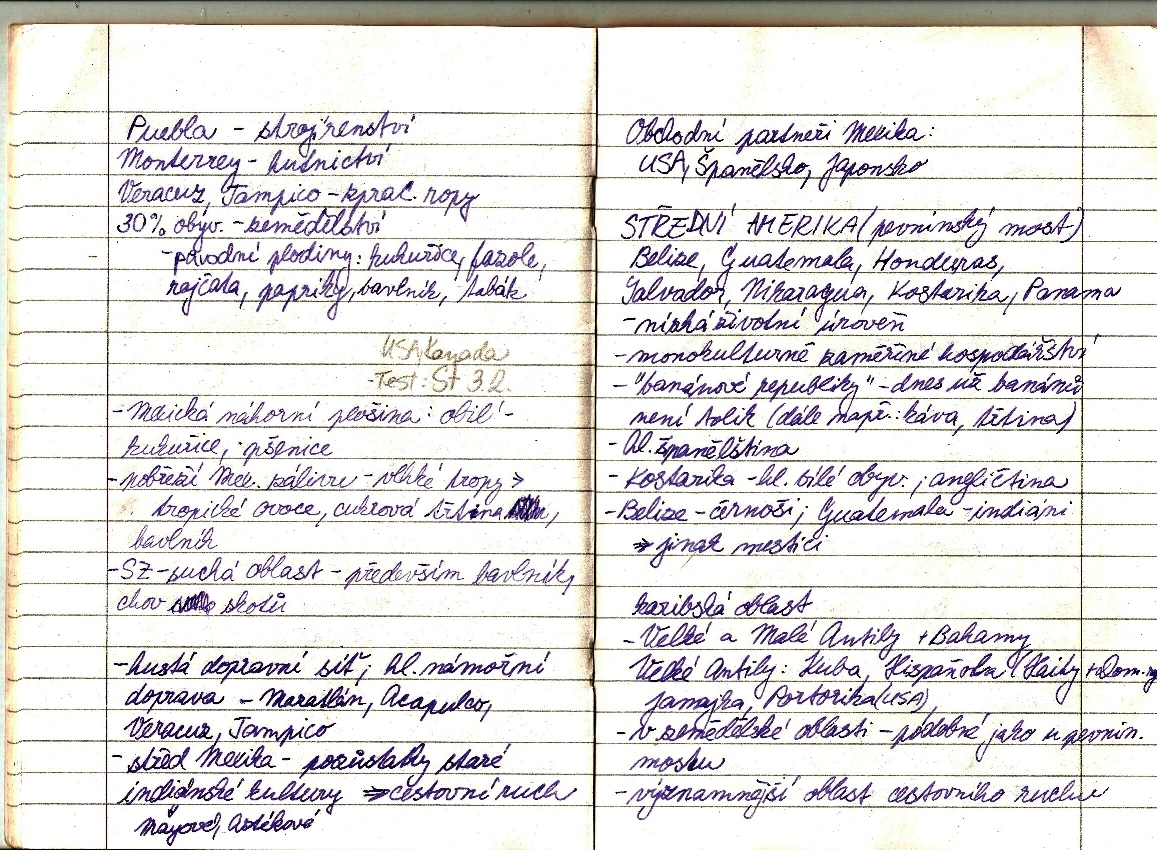 Puebla - strojírenství
Monterrey - hutnictví
Veracuz, Tampico - zprac. ropy
30% obyv. - zemědělství
- původní plodiny: kukuřice, fazole,
rajčata, papriky, bavlník, tabák
USA, Kanada
- Test: St 3.2.
- Mexická náhorní plošina: obilí -
kukuřice, pšenice
- pobřeží Mex. zálivu - vlhké tropy ⇒
tropické ovoce, cukrová třtina,
bavlník
- SZ - suchá oblast - především bavlník,
chov skotu
- hustá dopravní síť; hl. námořní
doprava - Mazatlán, Acapulco,
Veracuz, Tampico
- střed Mexika - pozůstatky staré
indiánské kultury ⇒ cestovní ruch
Mayové, Aztékové
Obchodní partneři Mexika:
USA, Španělsko, Japonsko
STŘEDNÍ AMERIKA (pevninský most)
Belize, Guatemala, Honduras,
Salvador, Nikaragua, Kostarika, Panama
- nízká životní úroveň
- monokulturně zaměřené hospodářství
- "banánové republiky" - dnes už banánů
není tolik (dále např.: káva, třtina)
- hl. španělština
- Kostarika - hl. bílé obyv.; angličtina
- Belize - černoši; Guatemala - indiáni
⇒ jinak mestici
karibská oblast
- Velké a Malé Antily + Bahamy
Velké Antily: Kuba, Hispaňola (Haity + Dom. rep
Jamajka, Portoriko (USA),
- v zemědělské oblasti - podobné jako u pevnin.
mostu
- významnější oblast cestovního ruchu